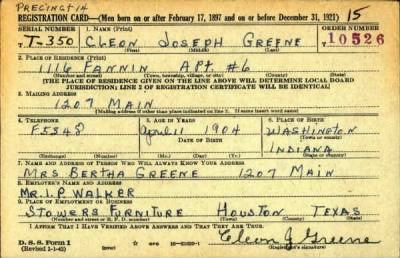 PRECINCT 14
REGISTRATION CARD—(Men born on or after February 17, 1897 and on or before December 31, 1921) 15
SERIAL NUMBER 1. NAME (Print) ORDER NUMBER
T-350 CLEON JOSEPH GREENE 10526
(First) (Middle) (Last)
2. PLACE OF RESIDENCE (Print)
1116 FANNIN APT #6
(Number and street) (Town, township, village, or city) (County) (State)
[THE PLACE OF RESIDENCE GIVEN ON THE LINE ABOVE WILL DETERMINE LOCAL BOARD
JURISDICTION; LINE 2 OF REGISTRATION CERTIFICATE WILL BE IDENTICAL]
3. MAILING ADDRESS
1207 MAIN
(Mailing address if other than place indicated on line 2. If same insert word same)
4. TELEPHONE 5. AGE IN YEARS 6. PLACE OF BIRTH
F5548 April 1904 WASHINGTON
DATE OF BIRTH (Town or county)
INDIANA
(Exchange) (Number) (Mo.) (Day) (Yr.) (State or country)
7. NAME AND ADDRESS OF PERSON WHO WILL ALWAYS KNOW YOUR ADDRESS
MRS BERTHA GREENE 1207 MAIN
8. EMPLOYER'S NAME AND ADDRESS
MR. I. P. WALKER
9. PLACE OF EMPLOYMENT OR BUSINESS
STOWERS FURNITURE HOUSTON TEXAS
(Number and street or R. F. D. number) (Town) (County) (State)
I AFFIRM THAT I HAVE VERIFIED ABOVE ANSWERS AND THAT THEY ARE TRUE.
D. S. S. Form 1
(Revised 1-1-42) (over) Cleon J Greene
(Registrant's signature)